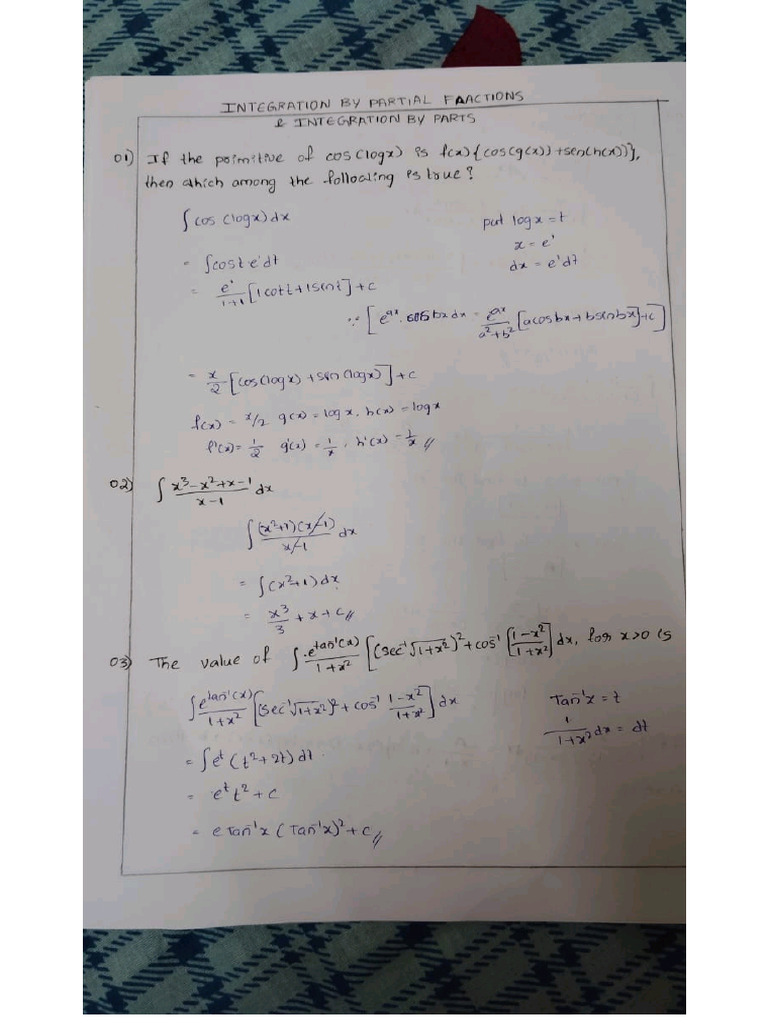 INTEGRATION BY PARTIAL FRACTIONS
& INTEGRATION BY PARTS
01) If the primitive of cos(logx) is f(x){cos(g(x))+sin(h(x))},
then which among the following is true?
∫cos(logx)dx put logx=t
x = eᵗ
= ∫cost·eᵗdt dx = eᵗdt
= eᵗ/1+1 [1cott+1sint]+c
∵ [eᵃˣ. cos bx dx = eᵃˣ/a²+b² [acosbx+bsinbx]+c]
= x/2 [cos(logx)+sin(logx)]+c
f(x) = x/2 g(x) = logx, h(x) = logx
f'(x) = 1/2 g'(x) = 1/x, h'(x) = 1/x //
02) ∫ x³-x²+x-1/x-1 dx
∫ (x²+1)(x-1)/x-1 dx
= ∫(x²+1)dx
= x³/3 + x + c //
03) The value of ∫ e^tan⁻¹(x)/1+x² [(sec⁻¹√1+x²)²+cos⁻¹[1-x²/1+x²] dx, for x>0 is
∫ e^tan⁻¹(x)/1+x² [(sec⁻¹√1+x²)²+cos⁻¹ 1-x²/1+x²] dx Tan⁻¹x = t
1/1+x² dx = dt
= ∫eᵗ(t²+2t)dt
= eᵗt²+c
= e Tan⁻¹x (Tan⁻¹x)²+c //